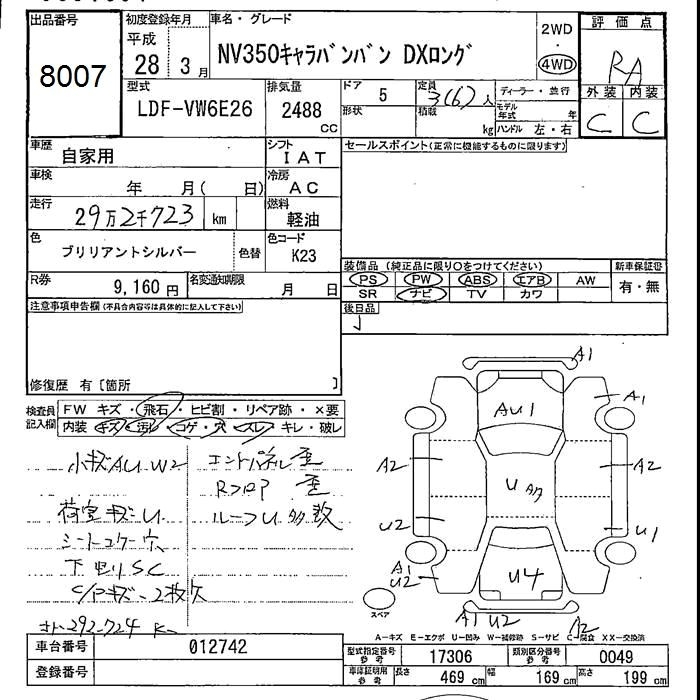 出品番号 初度登録年月 車名・グレード 評価点
8007 平成 28 3月 NV350キャラバンバン DXロング 2WD 4WD RA
型式 排気量 ドア 定員 ディーラー・並行 外装 内装
LDF-VW6E26 2488 cc 5 3(6)人 C C
形状 積載 kg モデル年式 年 ハンドル 左・右
車歴 自家用 シフト IAT セールスポイント(正常に機能するものに限ります)
車検 年 月( 日) 冷房 AC
走行 29万2千723 km 燃料 軽油
色 ブリリアントシルバー 色替 色コード K23
装備品 (純正品に限り○をつけてください) 新車保証書
PS PW ABS エアB AW 有・無
SR ナビ TV カワ
R券 9,160円 名変通知期限 月 日
後日品
注意事項申告欄(不具合内容等は具体的に記入して下さい)
修復歴 有〔箇所 〕
検査員記入欄 FW キズ・飛石・ヒビ割・リペア跡・×要
内装 キズ・汚れ・コゲ・穴・スレ・キレ・破レ
小キズAU.W2 エンドパネル歪
Rフロア 歪
荷室キズU. ルーフU多数
シートコゲ穴
下回りSC
2枚欠
292-724 K
A1
A1 AU1
A2 A2
U2 U1
A1 U2 U4
スペア A1 U2 A2
A-キズ E-エクボ U-凹み W-補修跡 S-サビ C-腐食 XX-交換済
車台番号 012742 型式指定番号 参考 17306 類別区分番号 参考 0049
登録番号 車庫証明用 参考 長さ 469 cm 幅 169 cm 高さ 199 cm